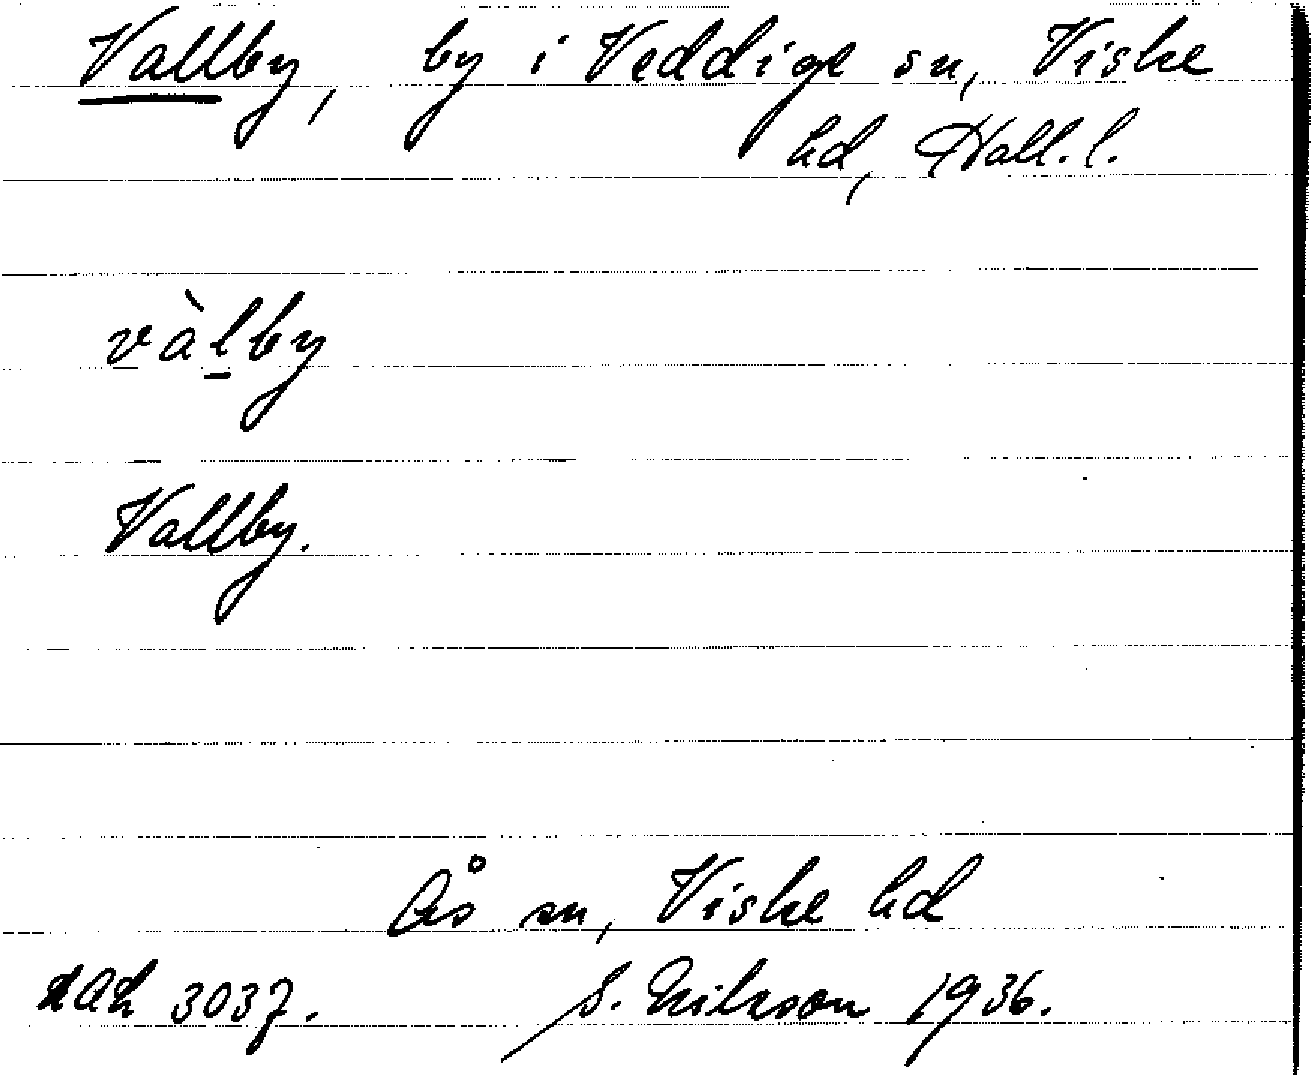 Vallby, by i Veddige sn, Viske
hd, Hall. l.
vàlby
Vallby.
Ås sn, Viske hd
3037. S. Erikson 1936.